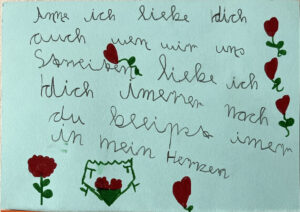 Anna ich liebe dich
auch wen mir uns
Streiten liebe ich
dich imener noch
du bleipst imer
in mein Herzen